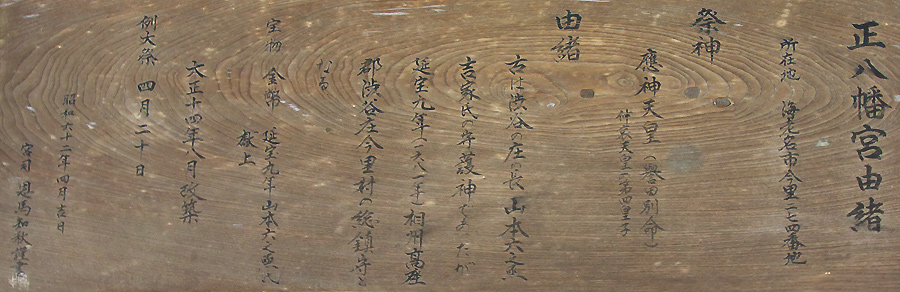 正八幡宮由緒
所在地 海老名市今里一七四番地
祭神
應神天皇(誉田別命)
仲哀天皇の第四皇子
由緒
古は渋谷の庄の長 山本六之烝
吉家氏の守護神であったが
延宝九年(一六八一年)相州高座
郡渋谷庄今里村の総鎮守と
なる
宝物 金幣 延宝九年 山本六之烝氏
献上
大正十四年 月改築
例大祭 四月二十日
昭和六十二年四月吉日
宮司